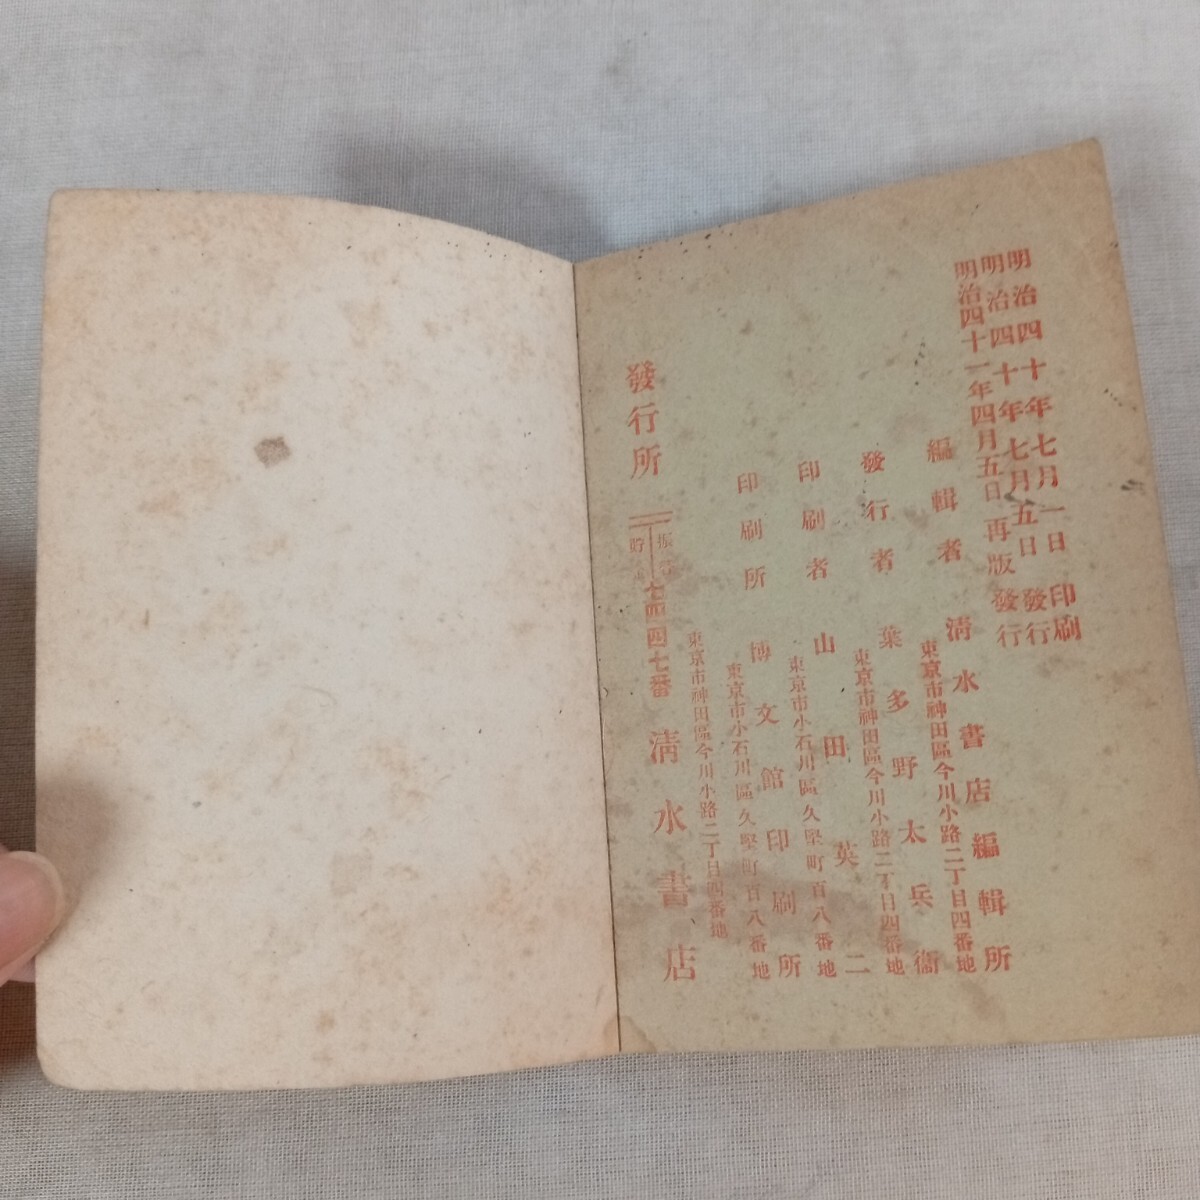 明治四十年七月一日印刷
明治四十年七月五日發行
明治四十一年四月五日再版發行
編輯者 清水書店編輯所
東京市神田區今川小路二丁目四番地
發行者 葉多野太兵衞
東京市神田區今川小路二丁目四番地
印刷者 山田英二
東京市小石川區久堅町百八番地
印刷所 博文館印刷所
東京市小石川區久堅町百八番地
東京市神田區今川小路二丁目四番地
發行所 清水書店
振
貯
七四四七番